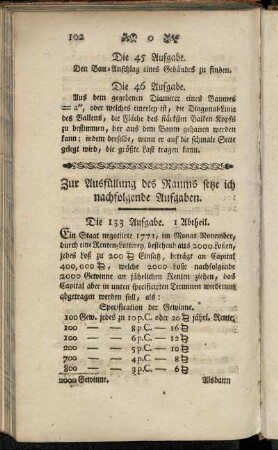 102
Die 45 Aufgabe.
Den Bau-Anschlag eines Gebäudes zu finden.
Die 46 Aufgabe.
Aus dem gegebenen Diameter eines Baumes
= a″, oder welches einerley ist, die Diagonal-Linie
des Balkens, die Fläche des stärksten Balken-Kopfs
zu bestimmen, der aus dem Baum gehauen werden
kann; indem derselbe, wenn er auf die schmale Seite
gelegt wird, die größte Last tragen kann.
Zur Ausfüllung des Raums setze ich
nachfolgende Aufgaben.
Die 133 Aufgabe. 1 Abtheil.
Ein Staat negotiirte 1771, im Monat November,
durch eine Renten-Lotterey, bestehend aus 2000 Losen,
jedes Loß zu 200 Einsatz, beträgt an Capital
400,000, welche 2000 Loße nachfolgende
2000 Gewinne an jährlichen Renten ziehen, das
Capital aber in unten specificirten Terminen wiederum
abgetragen werden soll, als:
Specification der Gewinne.
100 Gew. jedes zu 10 p.C. oder 20 jährl. Rente.
100 — — 8 p.C. — 16
100 — — 6 p.C. — 12
200 — — 5 p.C. — 10
700 — — 4 p.C. — 8
800 — — 3 p.C. — 6
2000 Gewinne. Alsdann